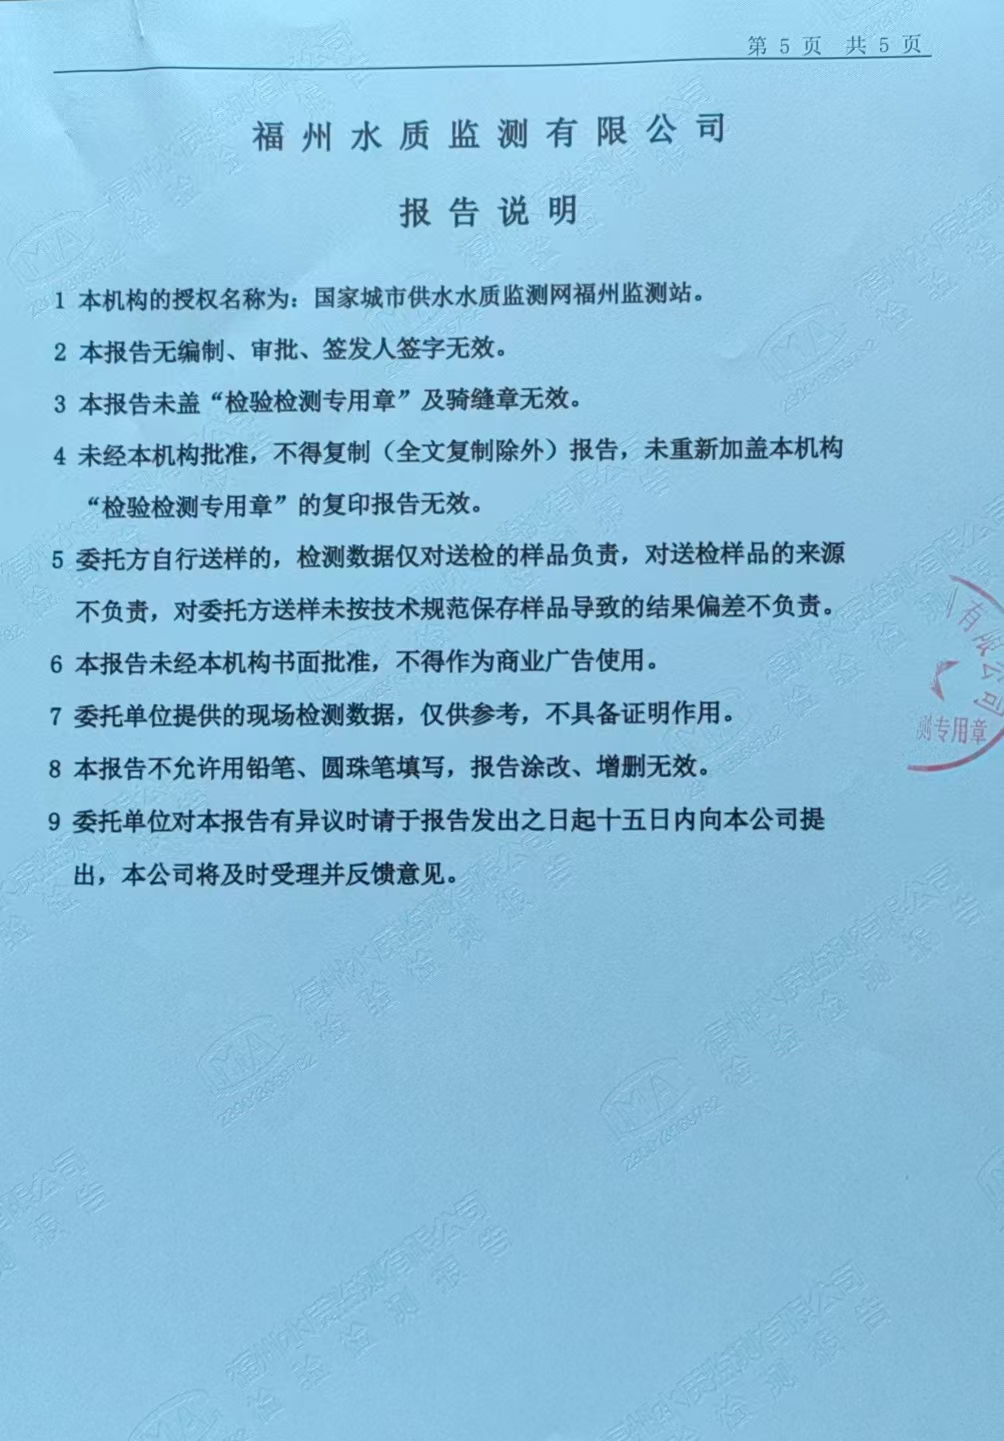 第 5 页 共 5 页
福州水质监测有限公司
报告说明
1 本机构的授权名称为：国家城市供水水质监测网福州监测站。
2 本报告无编制、审批、签发人签字无效。
3 本报告未盖“检验检测专用章”及骑缝章无效。
4 未经本机构批准，不得复制（全文复制除外）报告，未重新加盖本机构
“检验检测专用章”的复印报告无效。
5 委托方自行送样的，检测数据仅对送检的样品负责，对送检样品的来源
不负责，对委托方送样未按技术规范保存样品导致的结果偏差不负责。
有限公司
测专用章
6 本报告未经本机构书面批准，不得作为商业广告使用。
7 委托单位提供的现场检测数据，仅供参考，不具备证明作用。
8 本报告不允许用铅笔、圆珠笔填写，报告涂改、增删无效。
9 委托单位对本报告有异议时请于报告发出之日起十五日内向本公司提
出，本公司将及时受理并反馈意见。